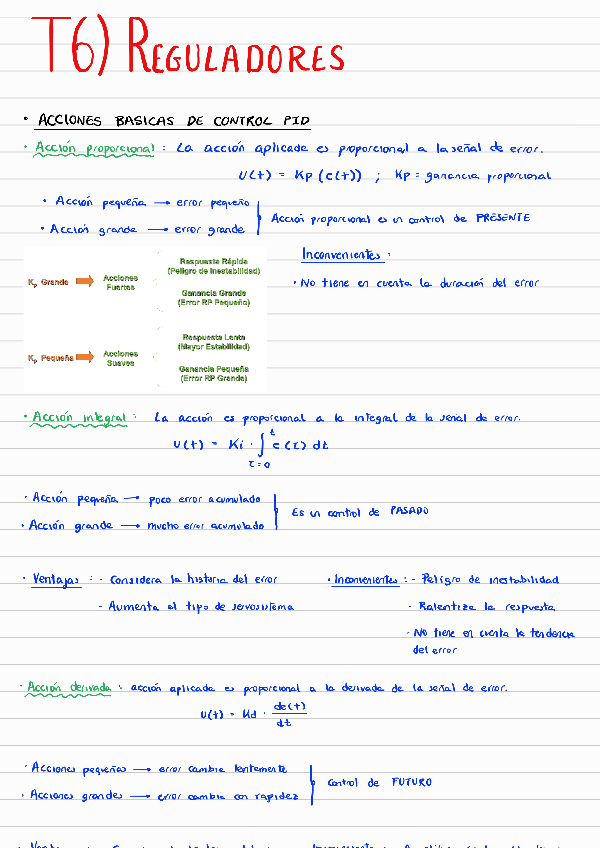 T6) REGULADORES
· ACCIONES BASICAS DE CONTROL PID
· Acción proporcional : La acción aplicada es proporcional a la señal de error.
U(t) = Kp (e(t)) ; Kp = ganancia proporcional
· Acción pequeña → error pequeño
· Acción grande → error grande
Acción proporcional es un control de PRESENTE
Kp Grande
Acciones Fuertes
Respuesta Rápida
(Peligro de Inestabilidad)
Ganancia Grande
(Error RP Pequeño)
Kp Pequeña
Acciones Suaves
Respuesta Lenta
(Mayor Estabilidad)
Ganancia Pequeña
(Error RP Grande)
Inconvenientes :
· No tiene en cuenta la duración del error
· Acción integral : La acción es proporcional a la integral de la señal de error.
U(t) = Ki · ∫ t τ=0 e(τ) dt
· Acción pequeña → poco error acumulado
· Acción grande → mucho error acumulado
Es un control de PASADO
· Ventajas : - Considera la historia del error
- Aumenta el tipo de servosistema
· Inconvenientes : - Peligro de inestabilidad
- Ralentiza la respuesta
· No tiene en cuenta la tendencia
del error
· Acción derivada : acción aplicada es proporcional a la derivada de la señal de error.
U(t) = Kd · de(t)/dt
· Acciones pequeñas → error cambia lentamente
· Acciones grandes → error cambia con rapidez
Control de FUTURO